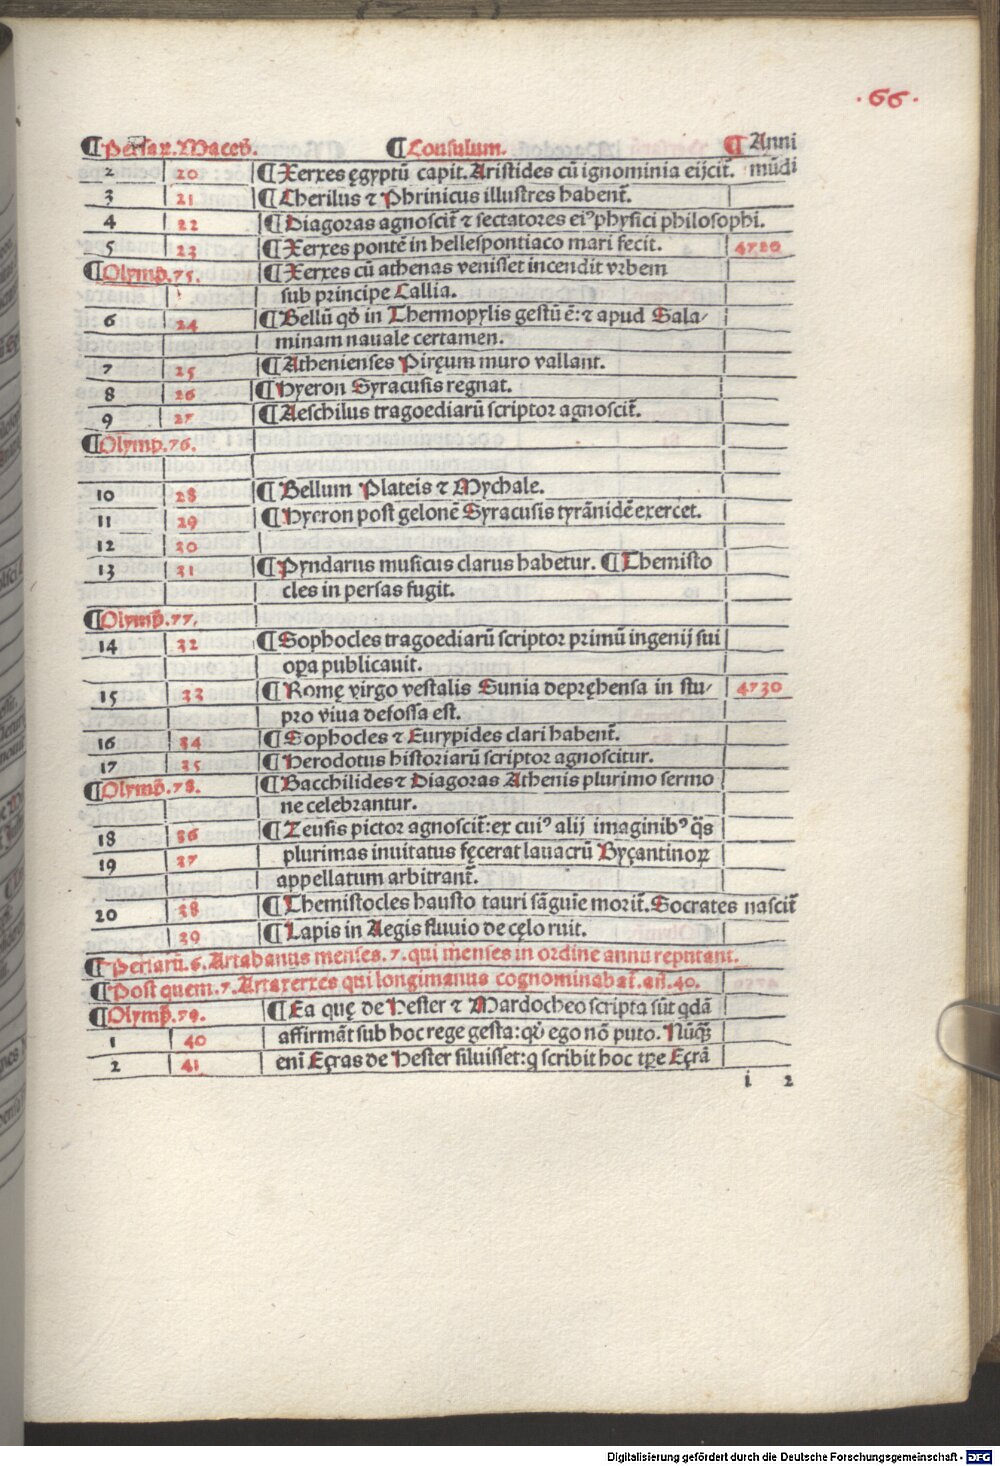 .66.
¶Persaꝝ. Maceđ. ¶Consulum. ¶Anni
2 20 ¶Xerxes ęgyptũ capit. Aristides cũ ignominia eijcit̃. mũdi
3 21 ¶Cherilus ⁊ Phrinicus illustres habent̃.
4 22 ¶Diagoras agnoscit̃ ⁊ sectatores eiꝰ physici philosophi.
5 23 ¶Xerxes pontẽ in hellespontiaco mari fecit. 4720
¶Olymp̃.75. ¶Xerxes cũ athenas venisset incendit vrbem
sub principe Callia.
6 24 ¶Bellũ qđ in Thermopylis gestũ ẽ: ⁊ apud Sala/
minam nauale certamen.
7 25 ¶Athenienses Piręum muro vallant.
8 26 ¶Hyeron Syracusis regnat.
9 27 ¶Aeschilus tragoediarũ scriptor agnoscit̃.
¶Olymp.76.
10 28 ¶Bellum Plateis ⁊ Mychale.
11 29 ¶Hyeron post gelonẽ Syracusis tyrãnidẽ exercet.
12 30
13 31 ¶Pyndarus musicus clarus habetur. ¶Themisto
cles in persas fugit.
¶Olymp̃.77.
14 32 ¶Sophocles tragoediarũ scriptor primũ ingenij sui
oꝑa publicauit.
15 33 ¶Romę virgo vestalis Sunia depręhensa in stu/ 4730
pro viua defossa est.
16 34 ¶Sophocles ⁊ Eurypides clari habent̃.
17 35 ¶Herodotus historiarũ scriptor agnoscitur.
¶Olymp̃.78. ¶Bacchilides ⁊ Diagoras Athenis plurimo sermo
ne celebrantur.
18 36 ¶Zeusis pictor agnoscit̃: ex cuiꝰ alij imaginibꝰ q̃s
19 37 plurimas inuitatus fęcerat lauacrũ Byçantinoꝝ
appellatum arbitrant̃.
20 38 ¶Themistocles hausto tauri sãguie morit̃. Socrates nascit̃
39 ¶Lapis in Aegis fluuio de cęlo ruit.
¶Persarũ.6. Artabanus menses.7. qui mẽses in ordine annu reputant.
¶Post quem.7. Artaxerxes qui longimanus cognominabat̃. añ.40.
¶Olymp̃.79. ¶Ea quę de Hester ⁊ Mardocheo scripta sũt q̃dã
1 40 affirmãt sub hoc rege gesta: qđ ego nõ puto. Nũq̃
2 41 enĩ Eçras de Hester siluisset: q̃ scribit hoc tꝑe Eçrã
i 2
Digitalisierung gefördert durch die Deutsche Forschungsgemeinschaft - DFG